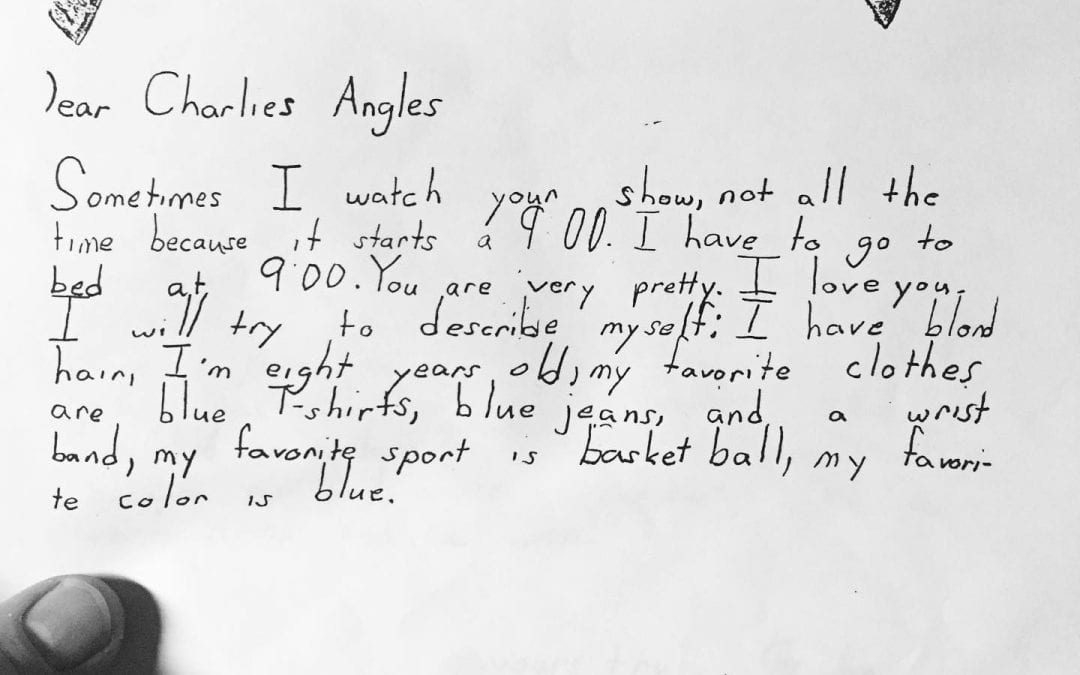 Dear Charlies Angles
Sometimes I watch your show, not all the
time because it starts a 9:00. I have to go to
bed at 9:00. You are very pretty. I love you.
I will try to describe myself: I have blond
hair, I'm eight years old, my favorite clothes
are blue T-shirts, blue jeans, and a wrist
band, my favorite sport is basket ball, my favori-
te color is blue.